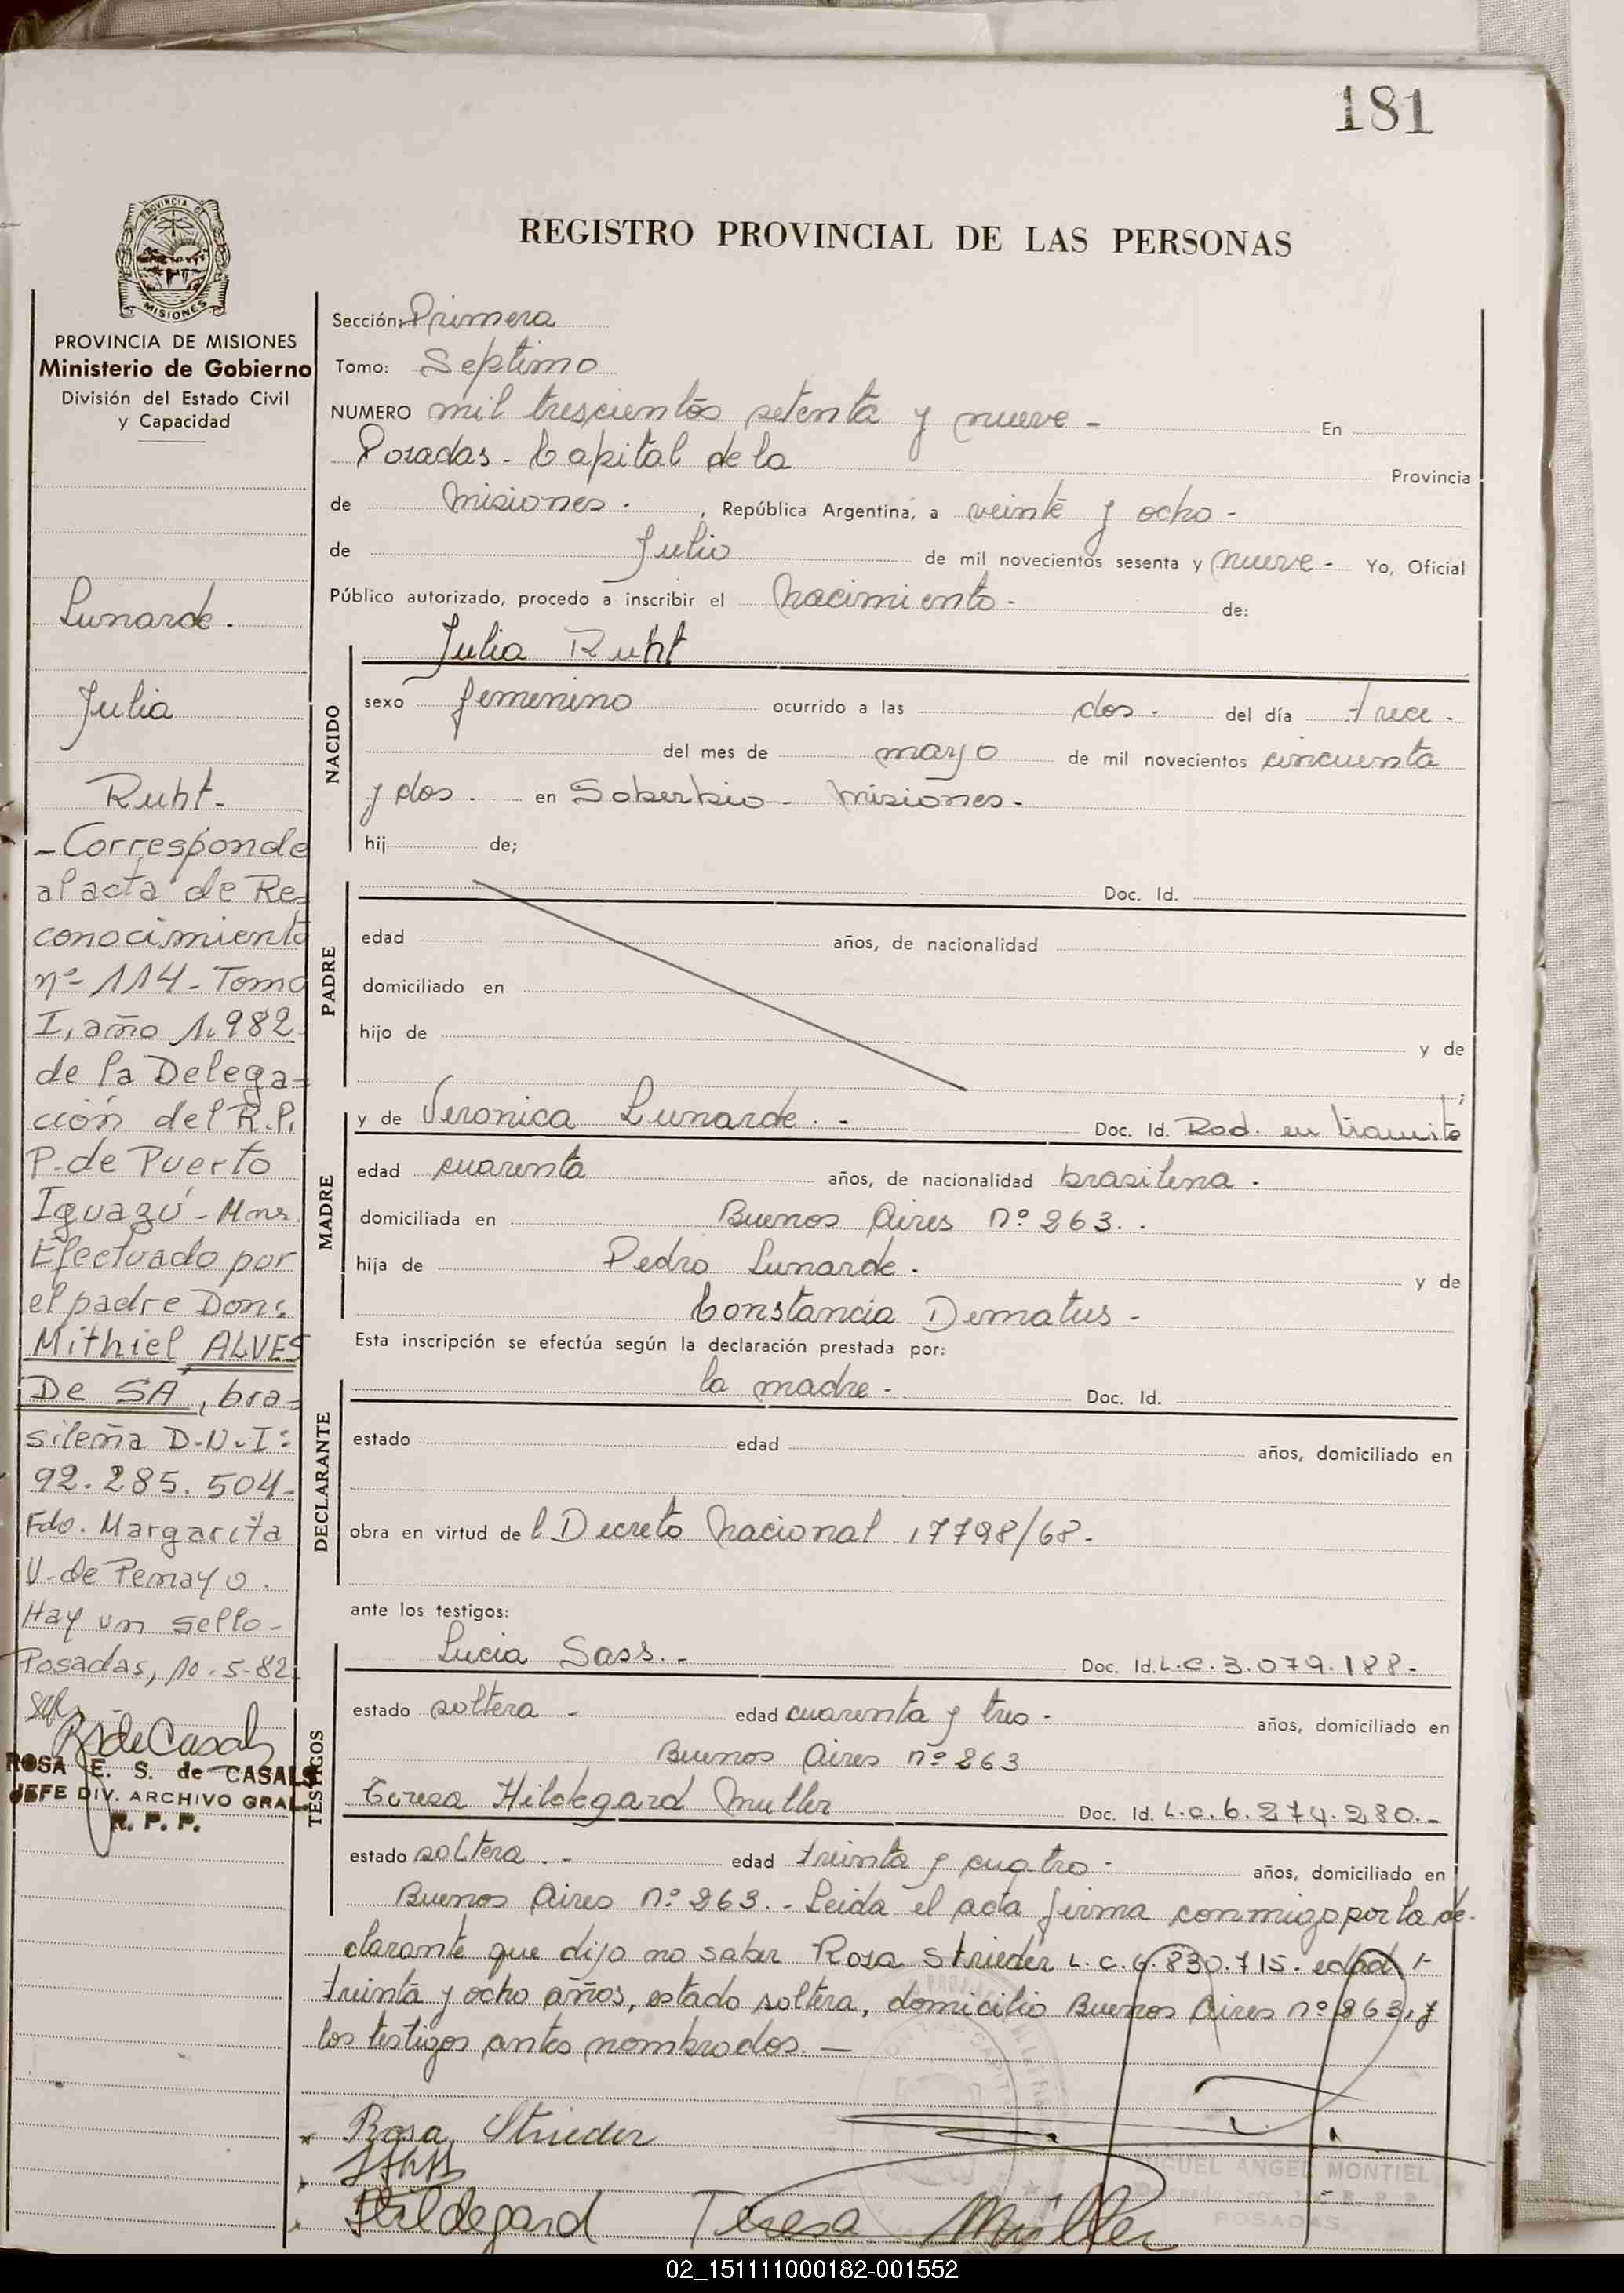 181
REGISTRO PROVINCIAL DE LAS PERSONAS
PROVINCIA DE
MISIONES
PROVINCIA DE MISIONES
Ministerio de Gobierno
División del Estado Civil
y Capacidad
Lunarde.
Julia
Ruht-
-Corresponde
al acta de Re-
conocimiento
nº 114-Tomo
I, año 1.982
de la Delega-
ción del R.P.
P. de Puerto
Iguazú-Mnes.
Efectuado por
el padre Don:
Mithiel ALVES
De SÁ, bra-
sileña D.N.I:
92.285.504-
Fdo. Margarita
V. de Pemayo.
Hay un sello-
Posadas, 10-5-82
R S de Casals
ROSA E. S. de CASALS
JEFE DIV. ARCHIVO GRAL.
R. P. P.
Sección: Primera
Tomo: Septimo
NUMERO mil trescientos setenta y nueve - En
Posadas - Capital de la Provincia
de Misiones. , República Argentina, a veinte y ocho -
de Julio de mil novecientos sesenta y nueve - Yo, Oficial
Público autorizado, procedo a inscribir el nacimiento - de:
Julia Ruht
NACIDO
sexo femenino ocurrido a las dos. del día trece.
del mes de mayo de mil novecientos cincuenta
y dos. en Soberbio - Misiones -
hij de;
PADRE
Doc. Id.
edad años, de nacionalidad
domiciliado en
hijo de y de
;
MADRE
y de Veronica Lunarde. - Doc. Id. Rad. en tramite
edad cuarenta años, de nacionalidad brasilena.
domiciliada en Buenos Aires nº 263. .
hija de Pedro Lunarde. y de
Constancia Dematus -
Esta inscripción se efectúa según la declaración prestada por:
DECLARANTE
la madre - Doc. Id.
estado edad años, domiciliado en
obra en virtud de l Decreto Nacional 17798/68-
ante los testigos:
TESTIGOS
Lucia Sass. - Doc. Id. L.C. 3.079.188-
estado soltera - edad cuarenta y tres - años, domiciliado en
Buenos Aires nº 263
Teresa Hildegard Muller Doc. Id. L.C. 6.274.280.-
estado soltera. - edad treinta y cuatro - años, domiciliado en
Buenos Aires nº 263. - Leida el acta firma conmigo por la de-
clarante que dijo no saber Rosa Strieder L.C. 6.830.715. edad
treinta y ocho años, estado soltera, domicilio Buenos Aires nº 263, y
los testigos antes nombrados. —
Rosa Strieder
Hildegard Teresa Müller
MIGUEL ANGEL MONTIEL
POSADAS
02_151111000182-001552